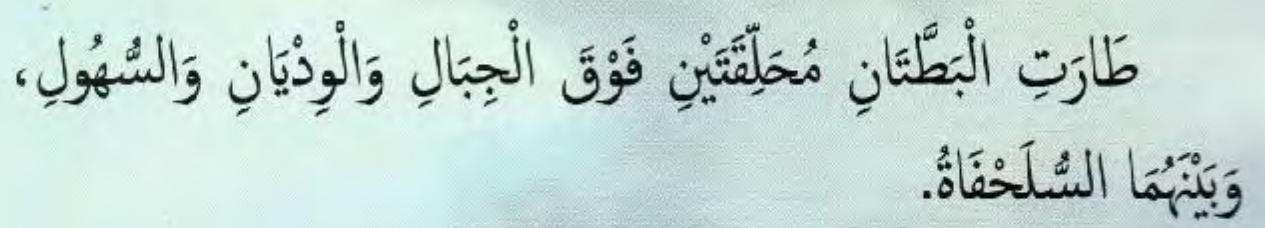 طَارَتِ الْبَطَّتَانِ مُحَلِّقَتَيْنِ فَوْقَ الْجِبَالِ وَالْوِدْيَانِ وَالسُّهُولِ،
وَبَيْنَهُمَا السُّلَحْفَاةُ.